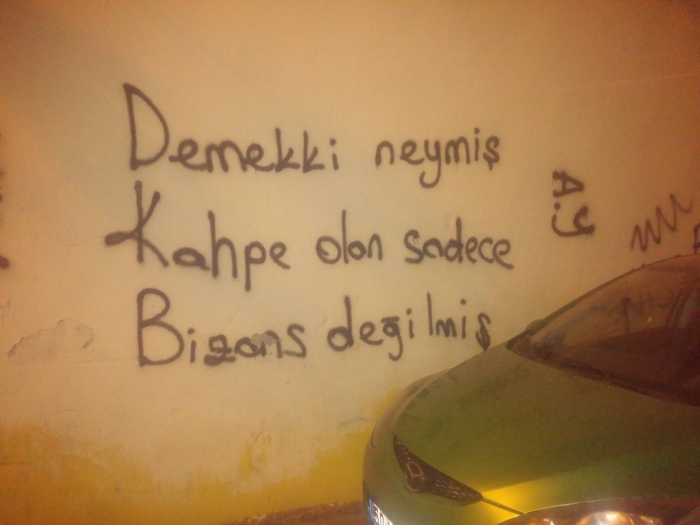 Demekki neymiş
Kahpe olan sadece
Bizans değilmiş
A.Y